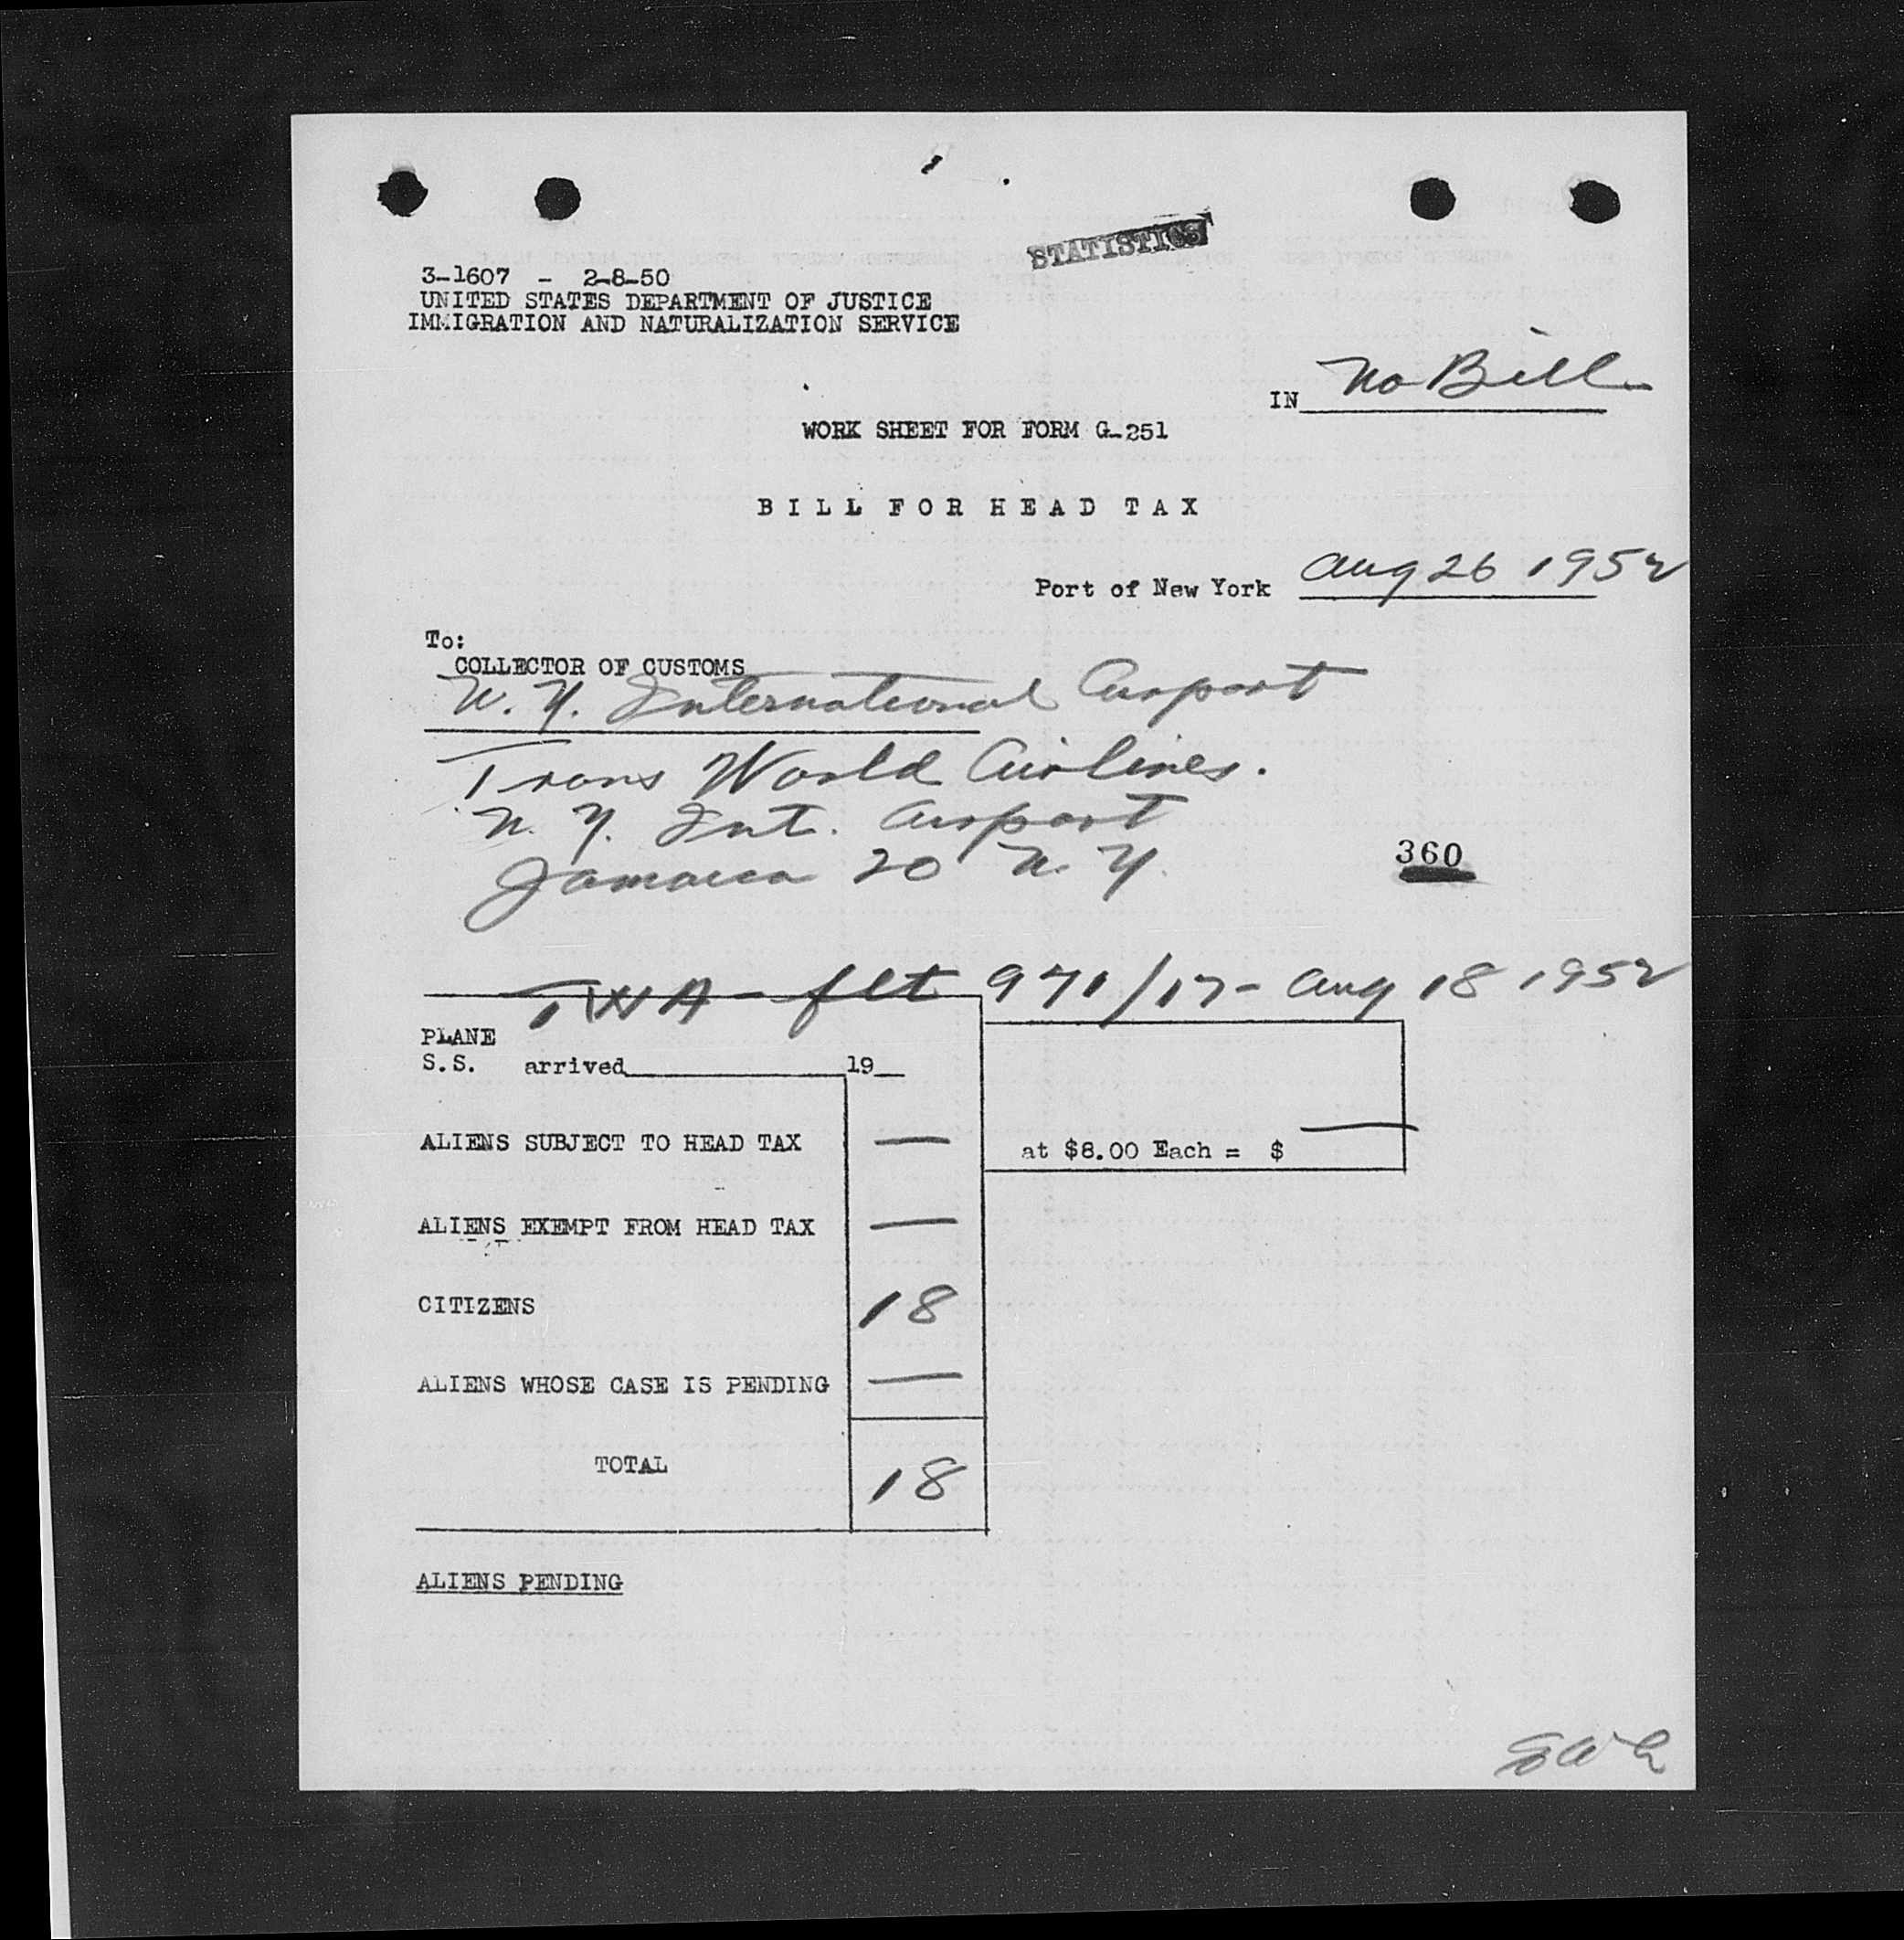 STATISTICS
3-1607 - 2-8-50
UNITED STATES DEPARTMENT OF JUSTICE
IMMIGRATION AND NATURALIZATION SERVICE
IN No Bill
WORK SHEET FOR FORM G-251
BILL FOR HEAD TAX
Port of New York Aug 26 1952
To:
COLLECTOR OF CUSTOMS
N. Y. International Airport
Trans World Airlines.
N. Y. Int. Airport
Jamaica 20 N. Y.
360
TWA - flt 971/17 - Aug 18 1952
PLANE
S.S. arrived 19
ALIENS SUBJECT TO HEAD TAX —
at $8.00 Each = $ —
ALIENS EXEMPT FROM HEAD TAX —
CITIZENS 18
ALIENS WHOSE CASE IS PENDING —
TOTAL 18
ALIENS PENDING